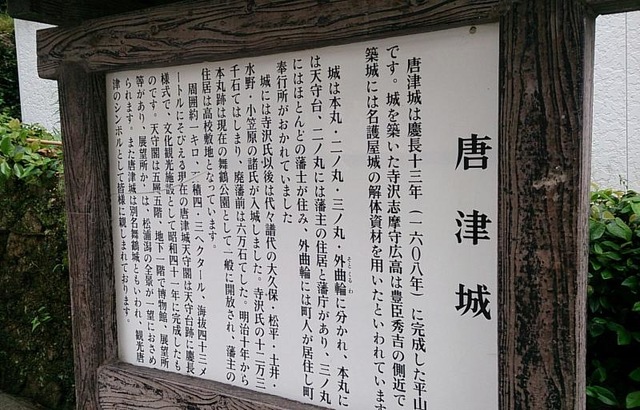 唐津城
唐津城は慶長十三年(一六〇八年)に完成した平山
です。城を築いた寺沢志摩守広高は豊臣秀吉の側近で
築城には名護屋城の解体資材を用いたといわれています
城は本丸・二ノ丸・三ノ丸・外曲輪に分かれ、本丸に
そとぐるわ
は天守台、二ノ丸には藩主の住居と藩庁があり、三ノ丸
にはほとんどの藩士が住み、外曲輪には町人が居住し町
奉行所がおかれていました
城には寺沢氏以後は代々譜代の大久保・松平・土井・
水野・小笠原の諸氏が入城しました。寺沢氏の十二万三
千石ではじまり、廃藩前は六万石でした。明治十年から
本丸跡は現在の舞鶴公園として一般に開放され、藩主の
住居は高校敷地となっています。
周囲約一キロ、積四・三ヘクタール、海抜四十三メ
ートルにそびえる現在の唐津城天守閣は天守台跡に慶長
様式で、文化観光施設として昭和四十一年に完成したも
のです。天守閣は五層五階、地下一階で博物館、展望所
等があり、展望所か は、松浦潟の全景が一望におさめ
られます。また唐津城は別名舞鶴城ともいわれ、観光唐
津のシンボルとして皆様に親しまれております。